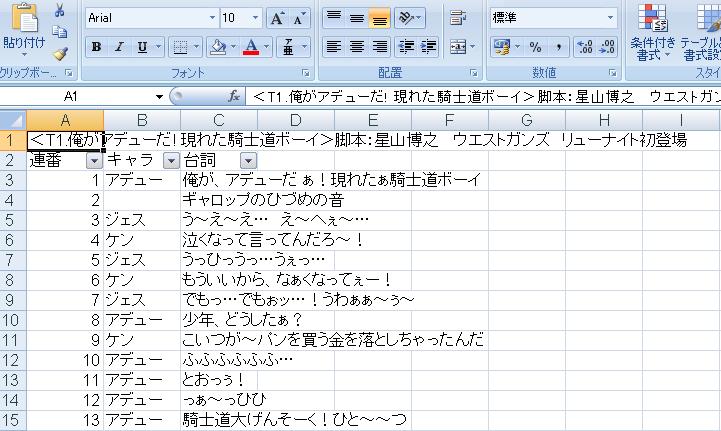 貼り付け
クリップボー...
Arial
10
A A
B I U
フォント
配置
標準
% ,
.0 .00
.00 .0
数値
条件付き
書式
テーブルと
書式設
スタイ
A1
fx
<T1.俺がアデューだ! 現れた騎士道ボーイ>脚本:星山博之 ウエストガン
A B C D E F G H I
1 <T1.俺がアデューだ! 現れた騎士道ボーイ>脚本:星山博之 ウエストガンズ リューナイト初登場
2 連番 キャラ 台詞
3 1 アデュー 俺が、アデューだぁ!現れたぁ騎士道ボーイ
4 2 ギャロップのひづめの音
5 3 ジェス う~え~え… え~へぇ~…
6 4 ケン 泣くなって言ってんだろ~!
7 5 ジェス うっひっうっ…うぇっ…
8 6 ケン もういいから、なぁくなってぇー!
9 7 ジェス でもっ…でもぉッ…!うわぁぁ~ぅ~
10 8 アデュー 少年、どうしたぁ?
11 9 ケン こいつが~パンを買う金を落としちゃったんだ
12 10 アデュー ふふふふふふ…
13 11 アデュー とおっぅ!
14 12 アデュー っぁ~っひひ
15 13 アデュー 騎士道大げんそーく!ひと~~つ